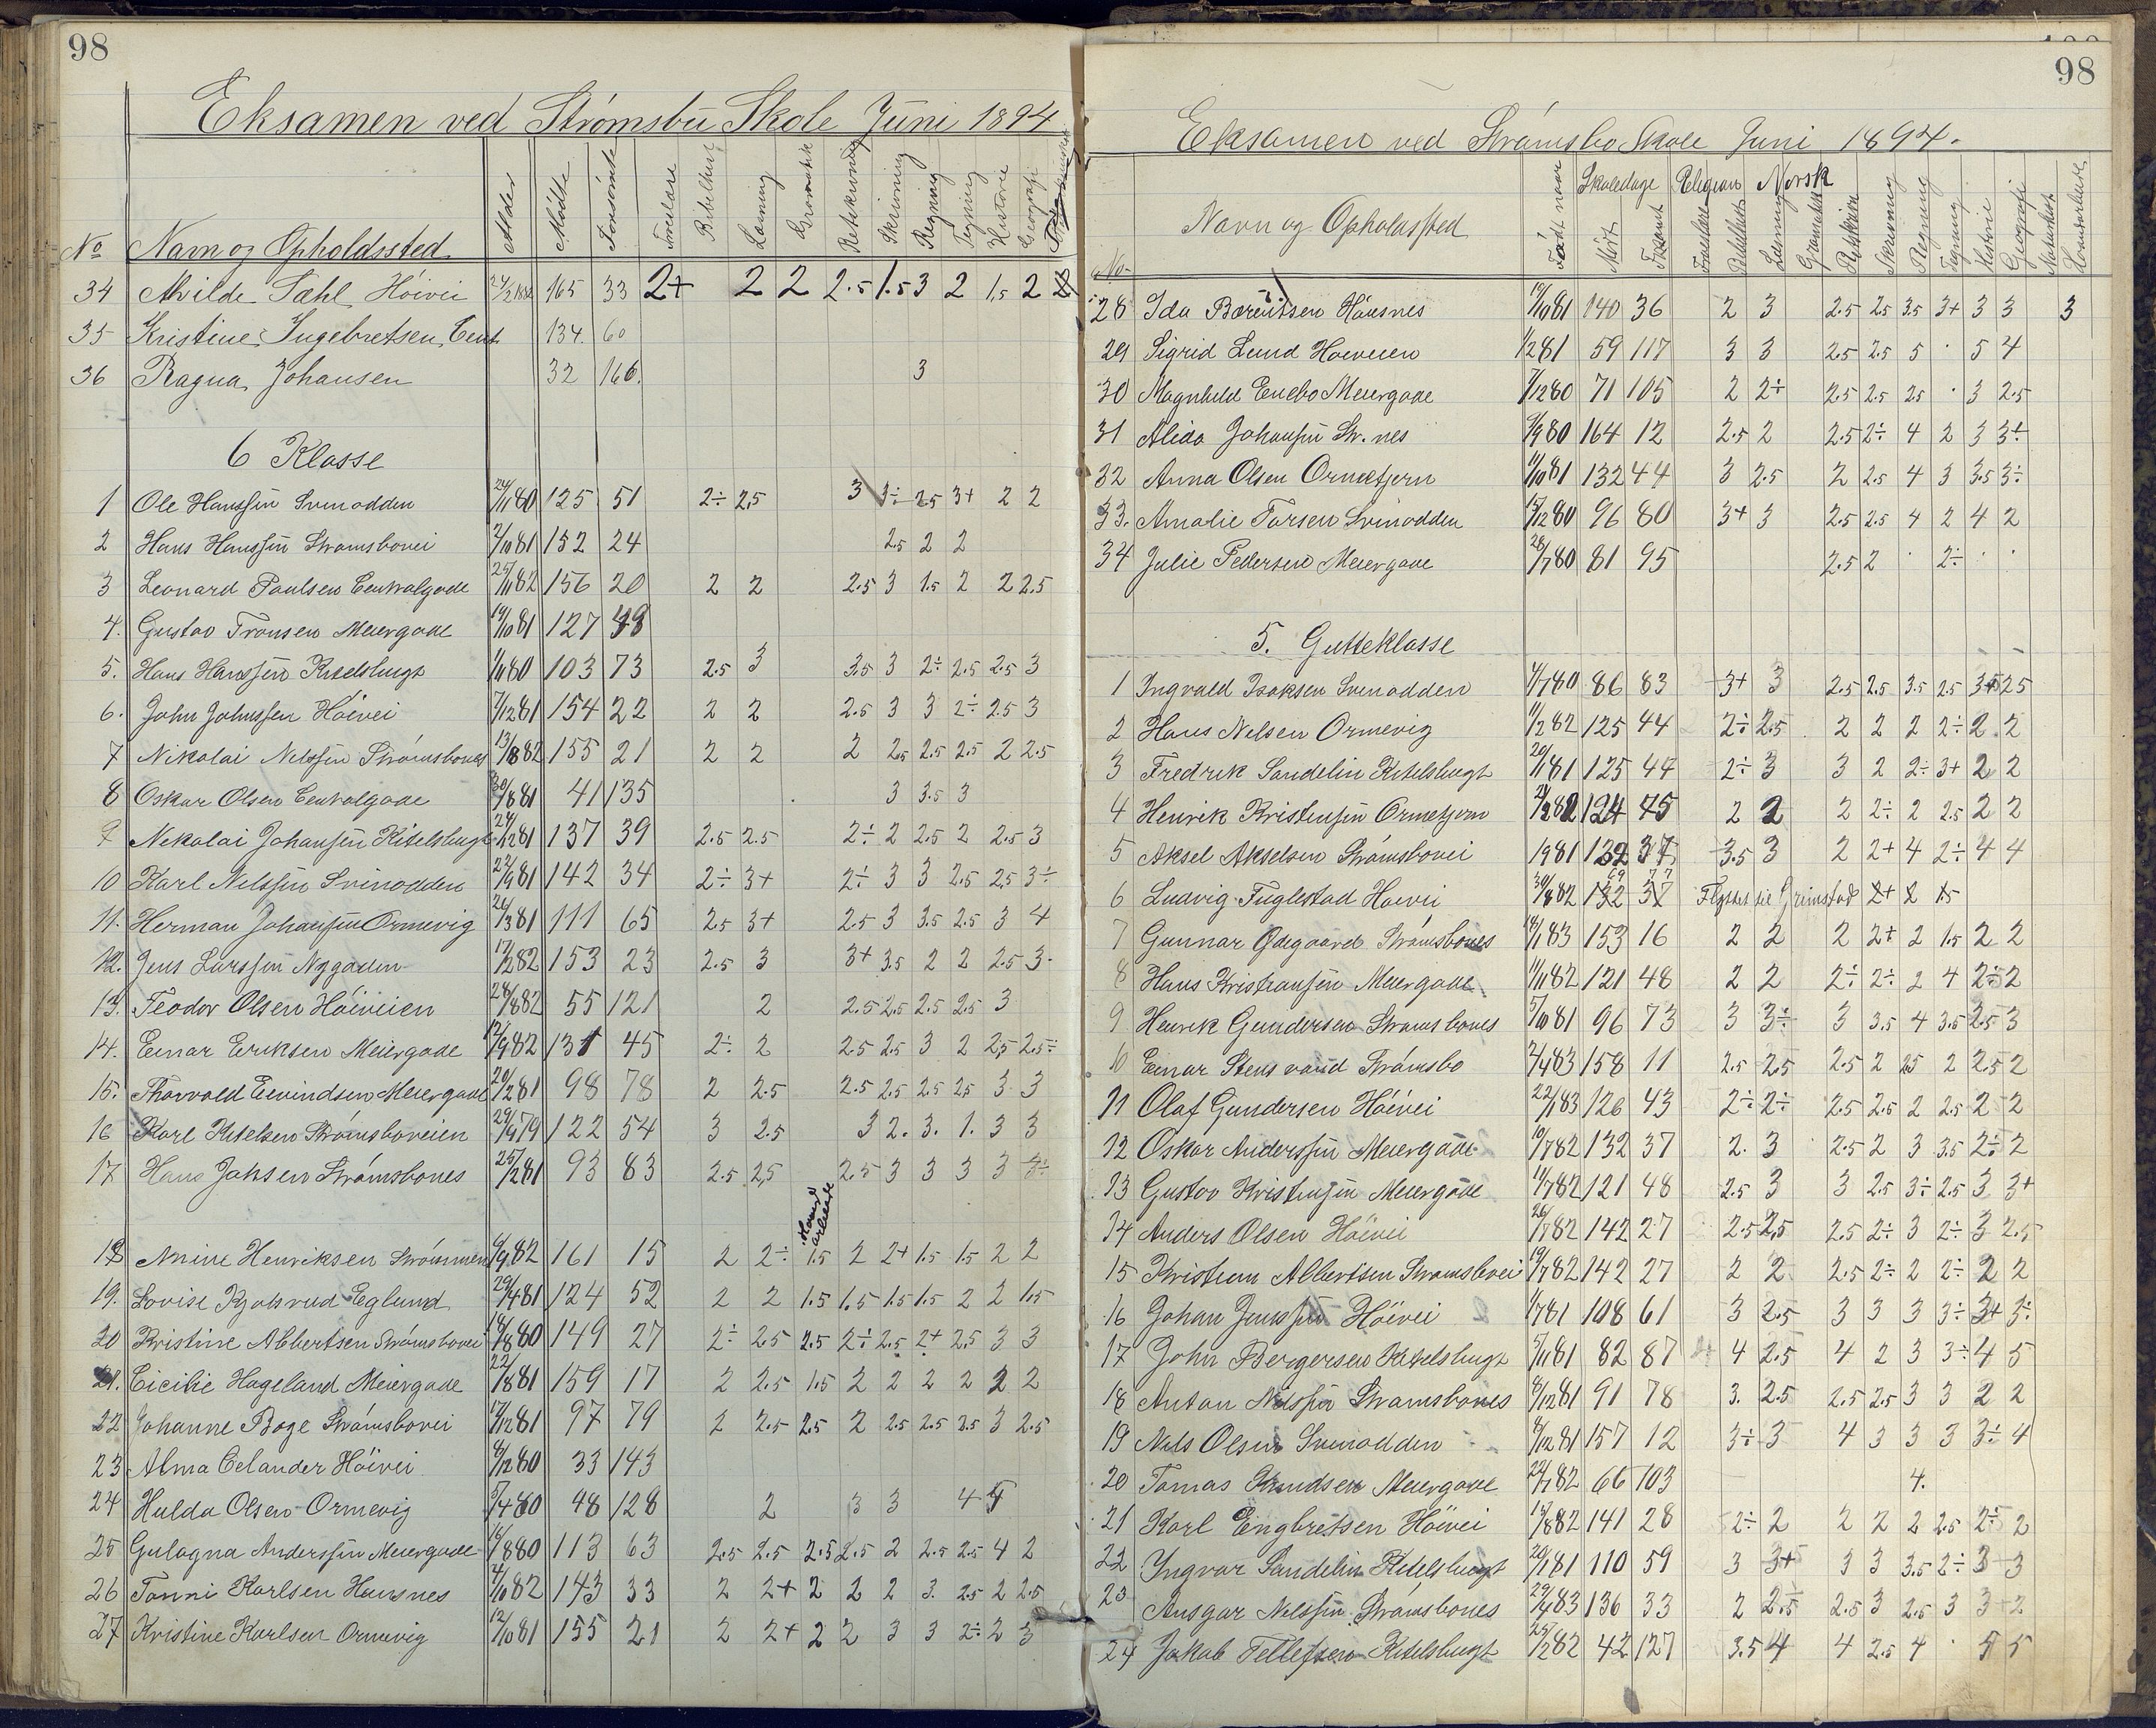 98
Eksamen ved Strømsbu Skole Juni 1894
No Navn og Opholdssted Alder Mødte Forsømte Troeslære Bibelhist Læsning Gramatik Retskrivning Skrivning Regning Tegning Historie Geografi
34 Alvilde Sæhl Höivei 165 33 2+ 2 2 2.5 1.5 3 2 1.5 2
35 Kristine Ingebretsen, Cent 134. 60
36 Ragna Johansen 32 166. 3
6 Klasse
1 Ole Hanssen Svinodden 24/11 80 125 51 2÷ 2.5 3 3÷ 2.5 3+ 2 2
2 Hans Hanssen Strømsbovei 2/10 81 152 24 2.5 2 2
3 Leonard Paulsen Centralgade 25/11 82 156 20 2 2 2.5 3 1.5 2 2 2.5
4. Gustav Fransen Meiergade 19/10 81 127 48
5. Hans Hanssen Kitelsbugt 1/11 80 103 73 2.5 3 3.5 3 2÷ 2.5 2.5 3
6. John Johnssen Höivei 7/12 81 154 22 2 2 2.5 3 3 2÷ 2.5 3
7 Nikolai Nilssen Strømsbones 13/8 82 155 21 2 2 2 2.5 2.5 2.5 2 2.5
8 Oskar Olsen Centralgade 30/8 81 41 135 3 3.5 3
9 Nekolai Johansen Kitelsbugt 24/12 81 137 39 2.5 2.5 2÷ 2 2.5 2 2.5 3
10 Karl Nilssen Svinodden 22/9 81 142 34 2÷ 3+ 2÷ 3 3 2.5 2.5 3÷
11. Herman Johansen Ormevig 26/3 81 111 65 2.5 3+ 2.5 3 3.5 2.5 3 4
12. Jens Larssen Nygaden 17/2 82 153 23 2.5 3 3+ 3.5 2 2 2.5 3.
13. Teodor Olsen Höiveien 28/8 82 55 121 2 2.5 2.5 2.5 2.5 3
14. Einar Eriksen Meiergade 12/9 82 131 45 2÷ 2 2.5 2.5 3 2 2.5 2.5÷
15. Thorvald Eivindsen Meiergade 20/12 81 98 78 2 2.5 2.5 2.5 2.5 2.5 3 3
16 Karl Kitelsen Strømsboveien 29/9 79 122 54 3 2.5 3 2. 3. 1. 3 3
17 Hans Jahsen Strømsbones 25/2 81 93 83 2.5 2.5 2.5 3 3 3 3 3÷
Haandarbeide
18 Mine Henriksen Strømmen 6/9 82 161 15 2 2÷ 1.5 2 2+ 1.5 1.5 2 2
19. Lovise Kjokrud Eglund 29/4 81 124 52 2 2 1.5 1.5 1.5 1.5 2 2 1.5
20 Kristine Albertsen Strømsbovei 18/8 80 149 27 2÷ 2.5 2.5 2÷ 2.5 2+ 2.5 3 3
21. Cicilie Hageland Meiergade 22/8 81 159 17 2 2.5 1.5 2 2 2 2 2 2
22 Johanne Boge Strømsbovei 17/12 81 97 79 2 2.5 2.5 2 2.5 2.5 2.5 3 2.5
23 Alma Celander Höivei 8/12 80 33 143
24 Hulda Olsen Ormevig 5/4 80 48 128 2 3 3 4
25 Gulagna Anderssen Meiergade 16/8 80 113 63 2.5 2.5 2.5 2.5 2 2.5 2.5 4 2
26 Tonni Karlsen Hausnes 4/10 82 143 33 2 2+ 2 2 2 3. 2.5 2 2.5
27 Kristine Karlsen Ormevig 12/10 81 155 21 2 2+ 2 2 3 3 2÷ 2 3
98
Eksamen ved Strømsbo Skole Juni 1894.
No Navn og Opholdssted Født naar Skoledage Mødt Forsømt Religion Troeslære Bibelhist Norsk Læsning Gramatik Retskriv Skrivning Regning Tegning Historie Geografi Naturhist
28 Ida Børentsen Hausnes 19/10 81 140 36 2 3 2.5 2.5 3.5 3+ 3 3 3
29 Sigrid Lund Hoiveien 1/2 81 59 117 3 3 2.5 2.5 5 . 5 4
30 Magnhild Enebo Meiergade 7/12 80 71 105 2 2÷ 2.5 2.5 2.5 . 3 2.5
31 Alida Johansen Str.nes 9/9 80 164 12 2.5 2 2.5 2÷ 4 2 3 3÷
32 Anna Olsen Ormetjern 11/10 81 132 44 3 2.5 2 2.5 4 3 3.5 3÷
33. Amalie Tarsen Svinodden 15/12 80 96 80 3+ 3 2.5 2.5 4 2 4 2
34 Julie Pedersen Meiergade 28/7 80 81 95 2.5 2 . 2÷ . .
5. Gutteklasse
1 Ingvald Isaksen Svinodden 4/7 80 86 83 3+ 3 2.5 2.5 3.5 2.5 3+ 2.5
2 Hans Nilsen Ormevig 11/2 82 125 44 2÷ 2.5 2 2 2 2÷ 2 2
3 Fredrik Sandelin Kitelsbugt 20/11 81 125 44 2÷ 3 3 2 2÷ 3+ 2 2
4 Henrik Kristensen Ormetjern 21/2 82 124 45 2 2 2 2÷ 2 2.5 2 2
5 Aksel Akselsen Strømsbovei 1981 132 37 3.5 3 2 2+ 4 2÷ 4 4
6 Ludvig Fuglestad Hoivei 30/8 82 132 37 Flyttet til Grimstad 2+ 2 1.5
7 Gunnar Ødegaard Strømsbones 18/1 83 153 16 2 2 2 2+ 2 1.5 2 2
8 Hans Kristiansen Meiergade 11/11 82 121 48 2 2 2÷ 2÷ 2 4 2÷ 2
9 Henrik Gundersen Strømsbones 5/10 81 96 73 3 3÷ 3 3.5 4 3.5 2.5 3
10 Einar Stensvand Strømsbo 2/4 83 158 11 2.5 2.5 2.5 2 2.5 2 2.5 2
11 Olaf Gundersen Höivei 22/1 83 126 43 2÷ 2÷ 2.5 2.5 2 2.5 2 2
12 Oskar Anderssen Meiergade 10/7 82 132 37 2. 3 2.5 2 3 3.5 2÷ 2
13 Gustav Kristensen Meiergade 11/7 82 121 48 2.5 3 3 2.5 3÷ 2.5 3 3+
14 Anders Olsen Höivei 26/7 82 142 27 2.5 2.5 2.5 2÷ 3 2÷ 3 2.5
15 Kristian Albertsen Strømsbovei 19/7 82 142 27 2 2 2.5 2÷ 2 2÷ 2 2
16 Johan Jenssen Höivei 1/7 81 108 61 3 2.5 3 3 3 3÷ 3+ 3÷
17 John Bergersen Kitelsbugt 5/11 81 82 87 4 2.5 4 2 3 3÷ 4 5
18 Anton Nilssen Strømsbones 8/12 81 91 78 3. 2.5 2.5 2.5 3 3 2 2
19 Nils Olsen Svinodden 8/12 81 157 12 3÷ 3 4 3 3 3 3÷ 4
20 Tomas Knudsen Meiergade 22/1 82 66 103 4.
21 Karl Engbretsen Höivei 15/8 82 141 28 2÷ 2 2 2 2 2.5 2÷ 2
22 Yngvar Sandelin Kitelsbugt 20/1 81 110 59 3 3+ 3 3 3.5 2÷ 3 3
23 Ansgar Nilssen Strømsbones 29/4 83 136 33 2 2.5 2.5 3 2.5 3 3 2
24 Jakob Tellefsen Kitelsbugt 25/2 82 42 127 3.5 4 4 2.5 4 . 5 5